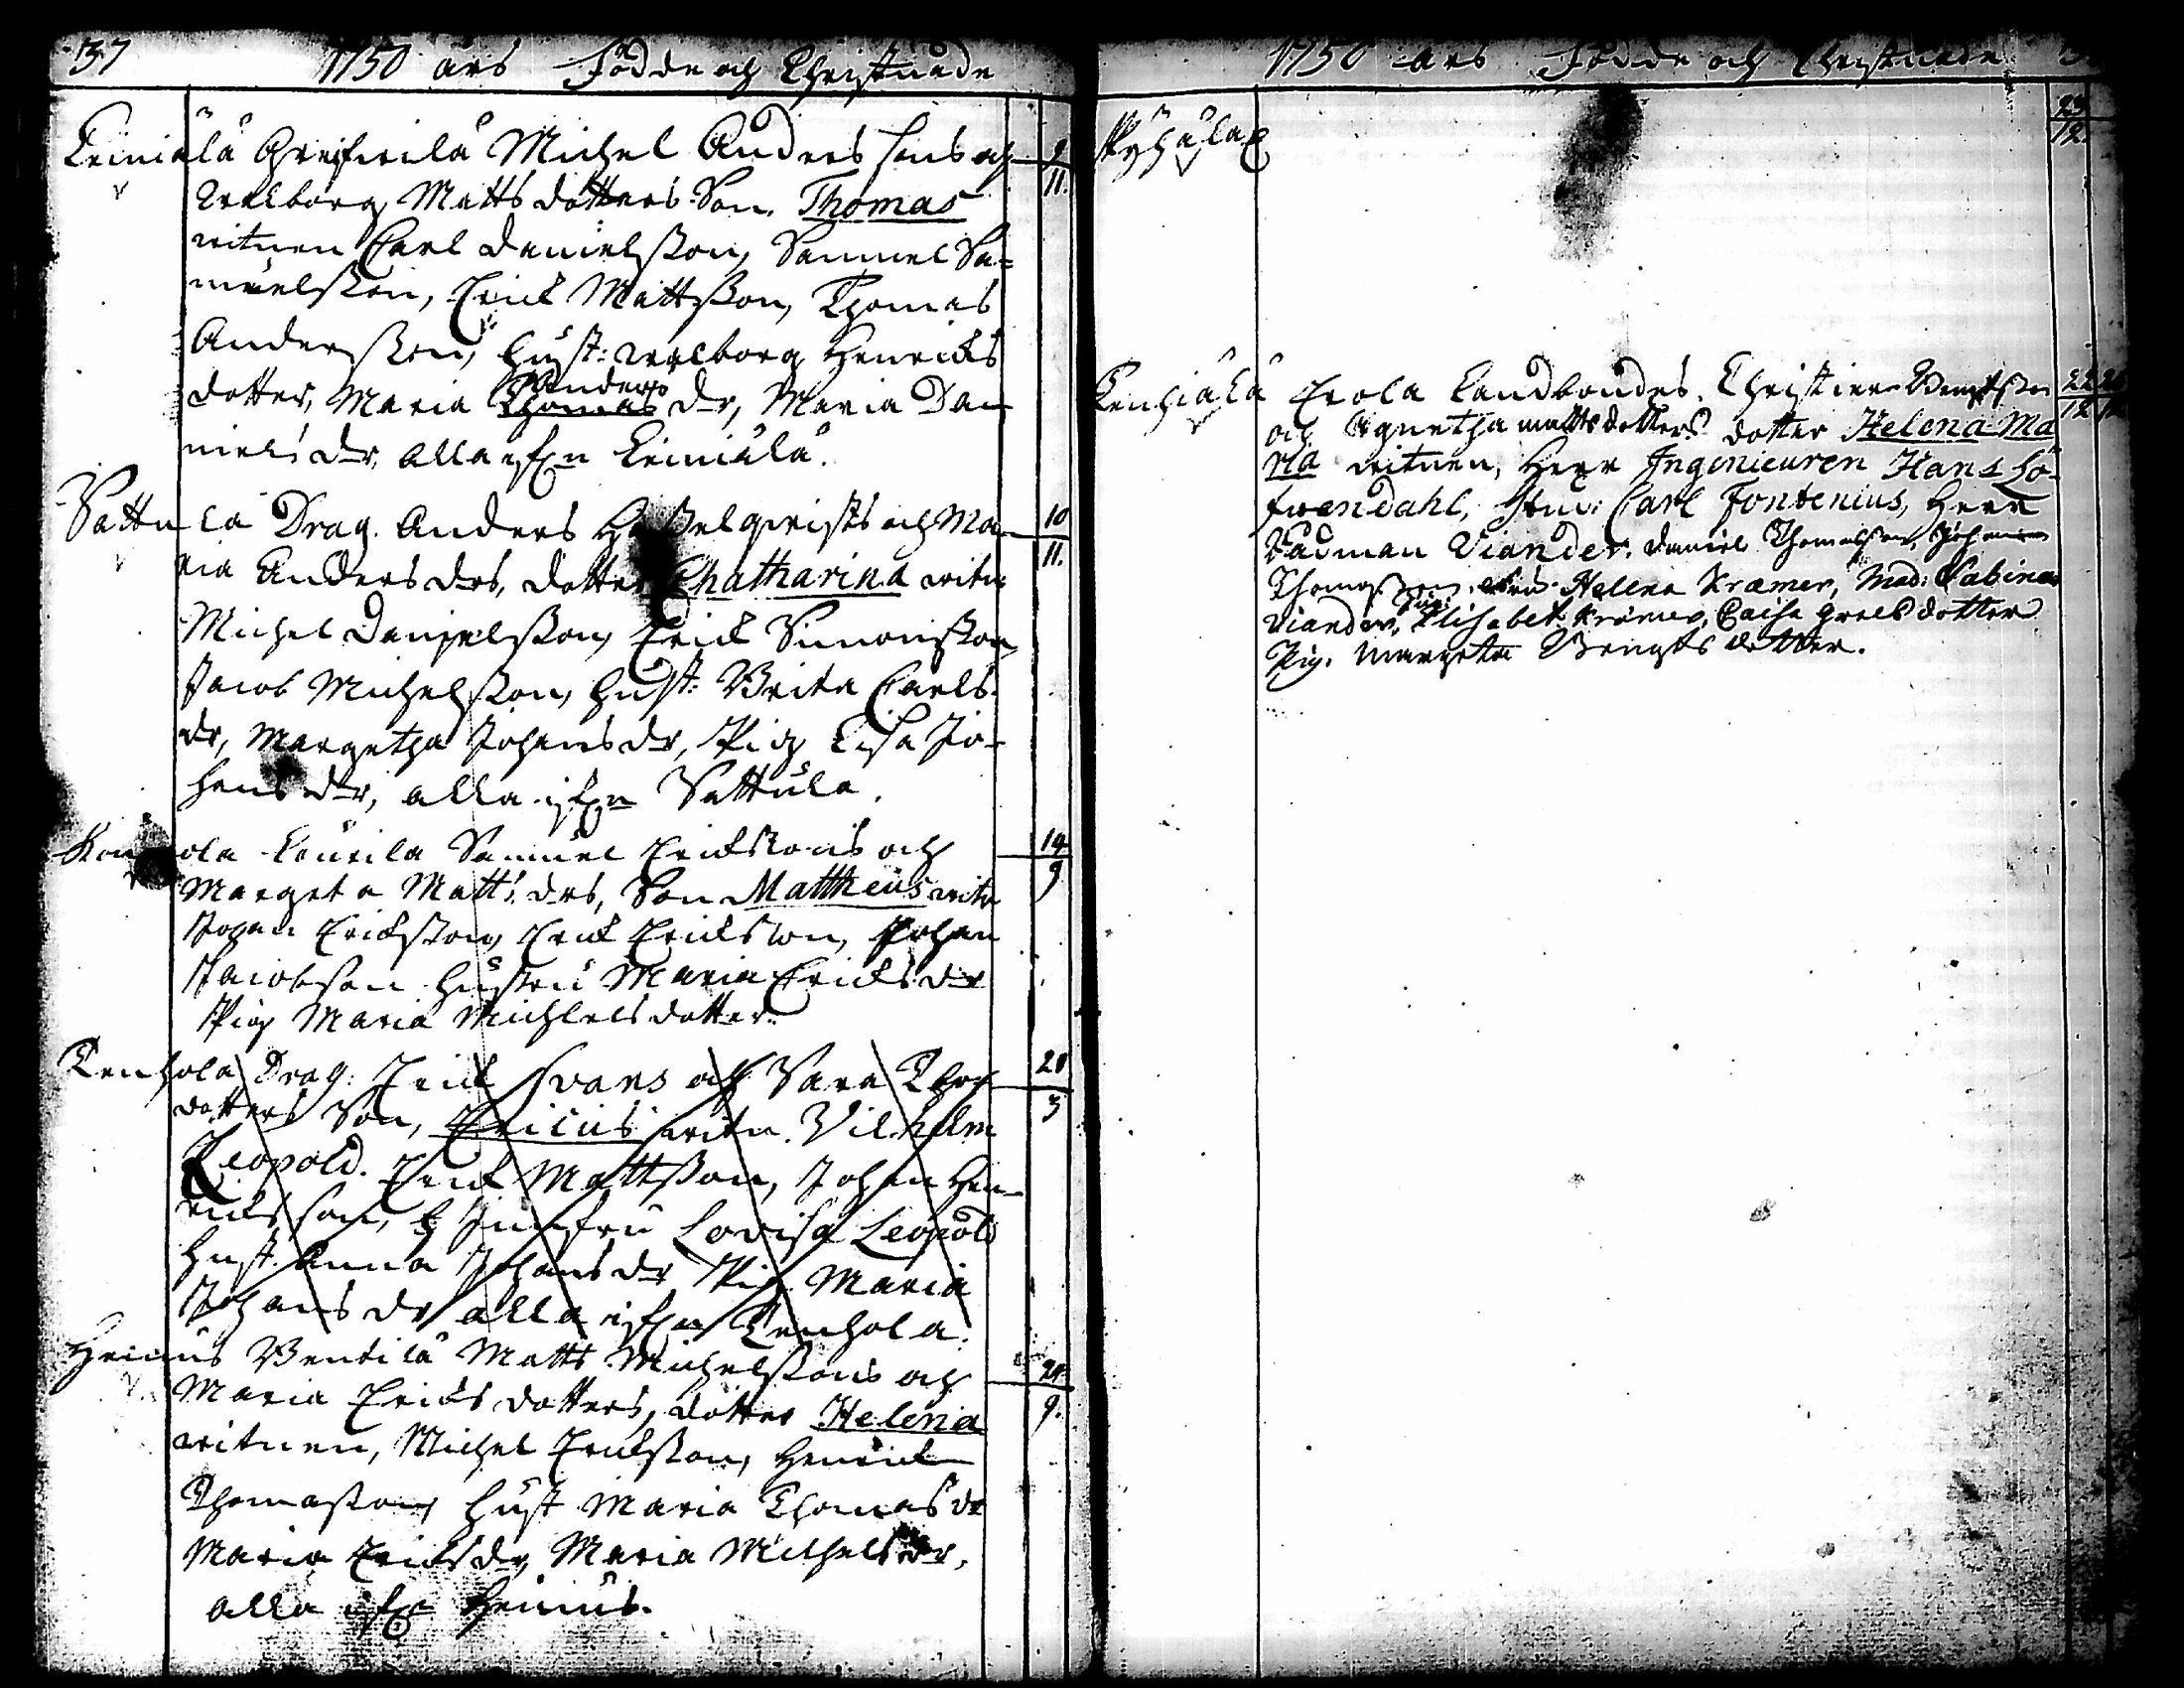 37 1750 års Födde och Christnade
Leiniälä Greifwilä Michel Anders sons och 9/11.
Walborg Matts dotters Son. Thomas
witnen Carl Danielsson, Samuel Sa=
muelsson, Erick Mattsson, Thomas
Andersson, Hust: Walborg Henricks
dotter, Maria Anders Thomas dr, Maria Dan
niels dr, alla ifrn Leiniälä.
Sattula Drag. Anders Hasselqwists och Ma- 10/11.
ria Anders drs, dotter Chatharina witn
Michel Danielsson, Erick Simonsson
Jacob Michelsson, Hust: Brita Carls
dr, Margetha Johans dr, Pig Lisa Jo-
hans dr, alla ifrn Sattula.
ola Laurila Samuel Ericksons och 14/9
Margeta Matts drs, Son Mattheus witn
Johan Ericksson, Erick Erickson, Johan
Jacobson Hustru Maria Ericks dr
Pig Maria Michels dotter.
Tenhola Drag: Erick Svans och Sara 28/3
dotters Son, Ericus witn. Vilhelm
Leopold. Erick Mattsson, Johan Hen-
ricks son, Jumfru Lovisa Leopold
Hust. Anna Johans dr Pig. Maria
Johans dr alla ifrn Tenhola.
Heinus Bentilä Matts Michelssons och 24/9.
Maria Ericks dotters, dotter Helena
witnen, Michel Ericksson, Henrick
Thomasson, Hust Maria Thomas dr
Maria Ericks dr, Maria Michels dr,
alla ifrn Heinus.
1750 års Födde och Christnade
Pyhälax 23/12
Tenhiälä Erola Landbondes. Christier Bengtsson 22/12 26/12
och Agnetha Matts dotters dotter Helena Ma
ria witnen, Herr Ingenieuren Hans Lö-
fwendahl, Stud: Carl Fontenius, Herr
Viander. Daniel Thomasson, Johan
Thomasson, Helena Kræmer, Mad: Sabina
Viander, Elisabet Kræmer, Caisa Greels dotter
Pig. Margeta Bengts dotter.